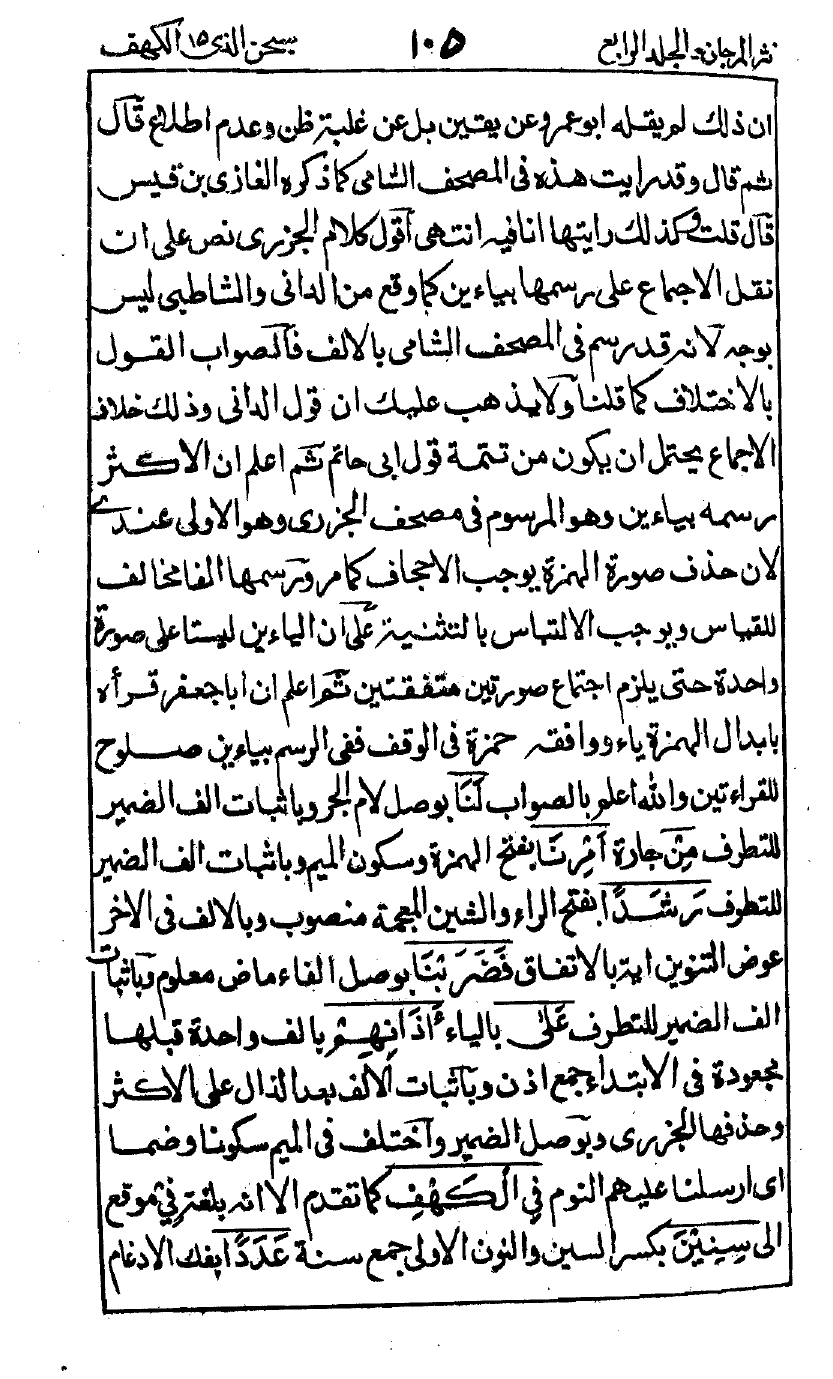 نثر المرجان، الجلد الرابع ١٠٥ سبحن الذى ١٥ الكهف
ان ذلك لم يقله ابو عمرو عن يقين بل عن غلبة ظن وعدم اطلاع قال
ثم قال وقد رايت هذه فى المصحف الشامى كما ذكره الغازى بن قيس
قال قلت وكذلك رايتها انا فيه انتهى اقول كلام الجزرى نص على ان
نقل الاجماع على رسمها بياءين كما وقع من الدانى والشاطبى ليس
بوجه لانه قد رسم فى المصحف الشامى بالالف فالصواب القول
بالاختلاف كما قلنا ولا يذهب عليك ان قول الدانى وذلك خلاف
الاجماع يحتمل ان يكون من تتمة قول ابى حاتم ثم اعلم ان الاكثر
رسمه بياءين وهو المرسوم فى مصحف الجزرى وهو الاولى عندے
لان حذف صورة الهمزة يوجب الاجحاف كما مر ورسمها الفا مخالف
للقياس ويوجب الالتباس بالتثنية على ان الياءين ليستا على صورة
واحدة حتى يلزم اجتماع صورتين متفقتين ثم اعلم ان ابا جعفر قرأه
بابدال الهمزة ياء ووافقه حمزة فى الوقف ففى الرسم بياءين صلوح
للقراءتين والله اعلم بالصواب لَنَا بوصل لام الجر وباثبات الف الضمير
للتطرف مِنْ جارة اَمْرِنَا بفتح الهمزة وسكون الميم وباثبات الف الضمير
للتطرف رَشَدًا بفتح الراء والشين المعجمة منصوب وبالالف فى الاخر
عوض التنوين اية بالاتفاق فَضَرَبْنَا بوصل الفاء ماض معلوم وباثبات
الف الضمير للتطرف عَلٰى بالياء ءَاذَانِهِمْ بالف واحدة قبلها
مجعودة فى الابتداء جمع اذن وباثبات الالف بعد الذال على الاكثر
وحذفها الجزرى وبوصل الضمير واختلف فى الميم سكونا وضما
اى ارسلنا عليهم النوم فِى الْكَهْفِ كما تقدم الا انه بلغتر فِى موقع
الى سِنِيْنَ بكسر السين والنون الاولى جمع سنة عَدَدًا بفك الادغام